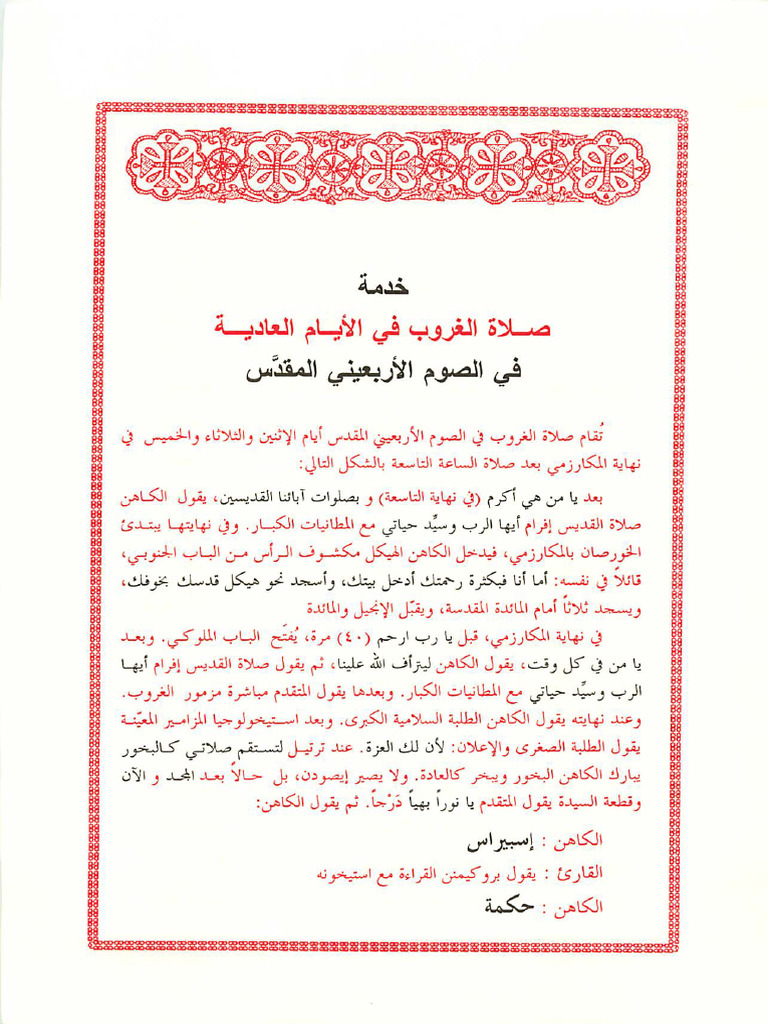 خدمة
صلاة الغروب في الأيام العادية
في الصوم الأربعيني المقدَّس
تُقام صلاة الغروب في الصوم الأربعيني المقدس أيام الإثنين والثلاثاء والخميس في
نهاية المكارزمي بعد صلاة الساعة التاسعة بالشكل التالي:
بعد يا من هي أكرم (في نهاية التاسعة) و بصلوات آبائنا القديسين، يقول الكاهن
صلاة القديس إفرام أيها الرب وسيِّد حياتي مع المطانيات الكبار. وفي نهايتها يبتدئ
الخورصان بالمكارزمي، فيدخل الكاهن الهيكل مكشوف الرأس من الباب الجنوبي،
قائلاً في نفسه: أما أنا فبكثرة رحمتك أدخل بيتك، وأسجد نحو هيكل قدسك بخوفك،
ويسجد ثلاثاً أمام المائدة المقدسة، ويقبّل الإنجيل والمائدة
في نهاية المكارزمي، قبل يا رب ارحم (٤٠) مرة، يُفتَح الباب الملوكي. وبعد
يا من في كل وقت، يقول الكاهن ليترأف الله علينا، ثم يقول صلاة القديس إفرام أيها
الرب وسيِّد حياتي مع المطانيات الكبار. وبعدها يقول المتقدم مباشرة مزمور الغروب.
وعند نهايته يقول الكاهن الطلبة السلامية الكبرى. وبعد استيخولوجيا المزامير المعيّنة
يقول الطلبة الصغرى والإعلان: لأن لك العزة. عند ترتيل لتستقم صلاتي كالبخور
يبارك الكاهن البخور ويبخر كالعادة. ولا يصير إيصودن، بل حالاً بعد المجد و الآن
وقطعة السيدة يقول المتقدم يا نوراً بهياً دَرْجاً. ثم يقول الكاهن:
الكاهن : إسبيراس
القارئ : يقول بروكيمنن القراءة مع استيخونه
الكاهن : حكمة